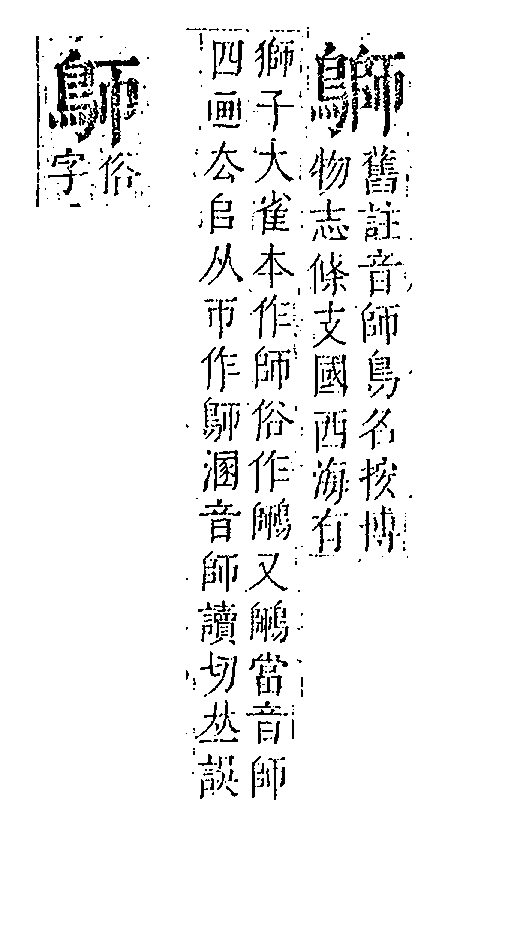 鶳舊註音師鳥名按博
物志條支國西海有
獅子大雀本作師俗作鶳又鶳當音師
四画厺𠂤从帀作鳾溷音師讀切𠀤誤
鳾俗
字